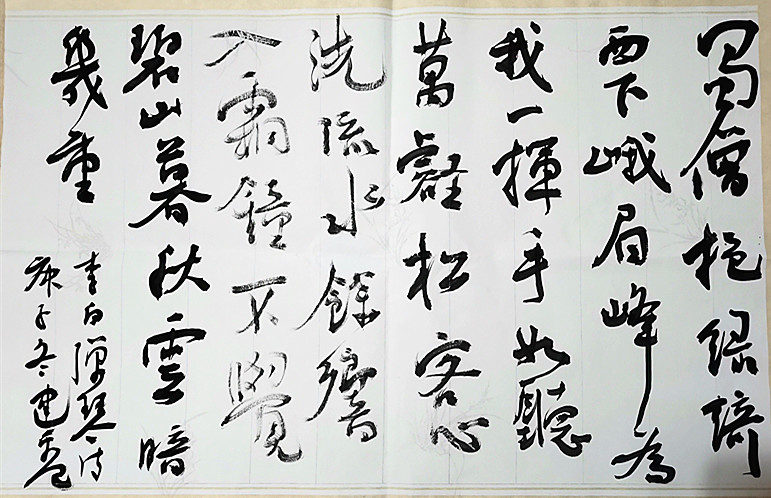 蜀僧抱绿绮
西下峨眉峰为
我一挥手如聽
萬壑松客心
洗流水餘響
入霜鐘不覺
碧山暮秋雲暗
幾重
李白弹琴诗
庚子冬建